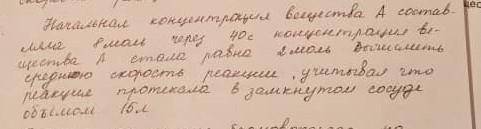 Начальная концентрация вещества А состав-
ляла 8 моль через 40с концентрация ве-
щества А стала равна 2 моль Вычислить
среднюю скорость реакции, учитывая что
реакция протекала в замкнутом сосуде
объёмом 15л